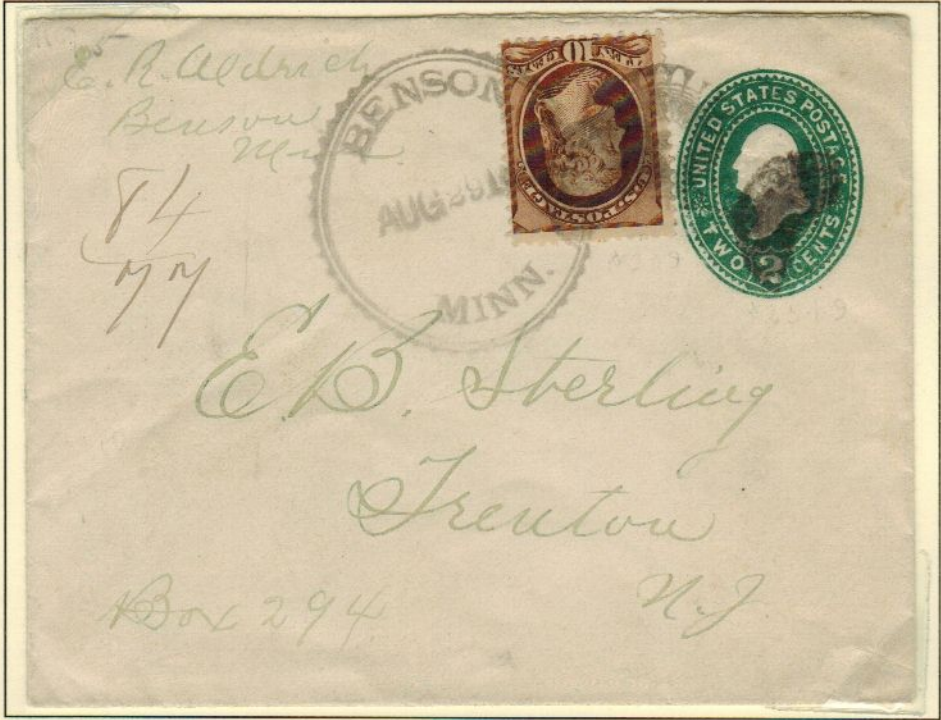 E. R. Aldrich
Benson
Minn.
84
77
BENSON
AUG 29 1
MINN.
10
U.S. POSTAGE
UNITED STATES POSTAGE
TWO 2 CENTS
E. B. Sterling
Trenton
N. J.
Box 294.